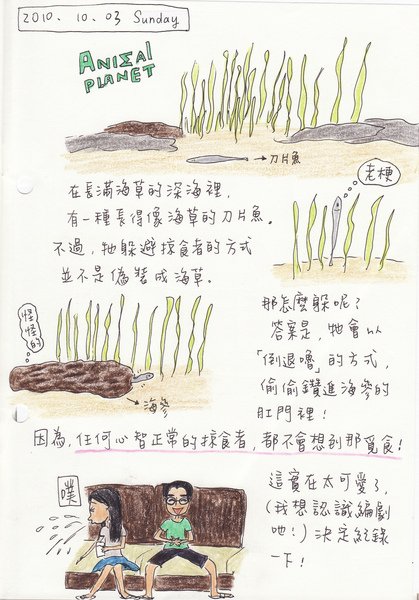 2010. 10. 03 Sunday
ANIMAL
PLANET
→刀片魚
在長滿海草的深海裡,
有一種長得像海草的刀片魚。
不過,牠躲避掠食者的方式
並不是偽裝成海草。
老梗
怪怪的
→海參
那怎麼躲呢?
答案是,牠會以
「倒退嚕」的方式,
偷偷鑽進海參的
肛門裡!
因為,任何心智正常的掠食者,都不會想到那覓食!
噗
這實在太可愛了,
(我想認識編劇
吔!)決定紀錄
一下!